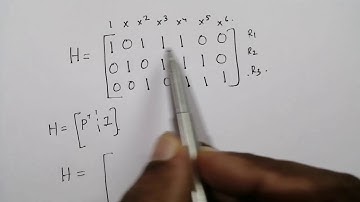 1 x x² x³ x⁴ x⁵ x⁶
H = [1 0 1 1 1 0 0] R₁
[0 1 0 1 1 1 0] R₂
[0 0 1 0 1 1 1] R₃
H = [Pᵀ ¦ I]
H = [